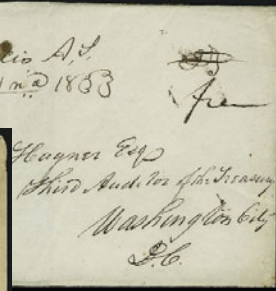 A, S,
1833
free
Hagner Esq
Third Auditor of the Treasury
Washington City
D. C.